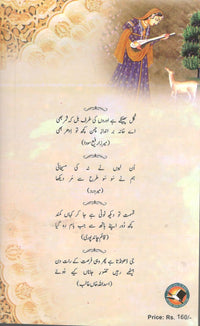 گل پھینکے ہے اوروں کی طرف بلکہ ثمر بھی
اے خانہ بر انداز چمن کچھ تو ادھر بھی
(میرزا رفیع سودا)
اُن لبوں نے نہ کی مسیحائی
ہم نے سو سو طرح سے مر دیکھا
(میر درد)
قسمت تو دیکھ ٹوٹی ہے جا کر کہاں کمند
کچھ دور اپنے ہاتھ سے جب بام رہ گیا
(قائم چاند پوری)
جی ڈھونڈتا ہے پھر وہی فرصت کے رات دن
بیٹھے رہیں تصور جاناں کیے ہوئے
(اسد اللہ خاں غالب)
Price: Rs. 160/-